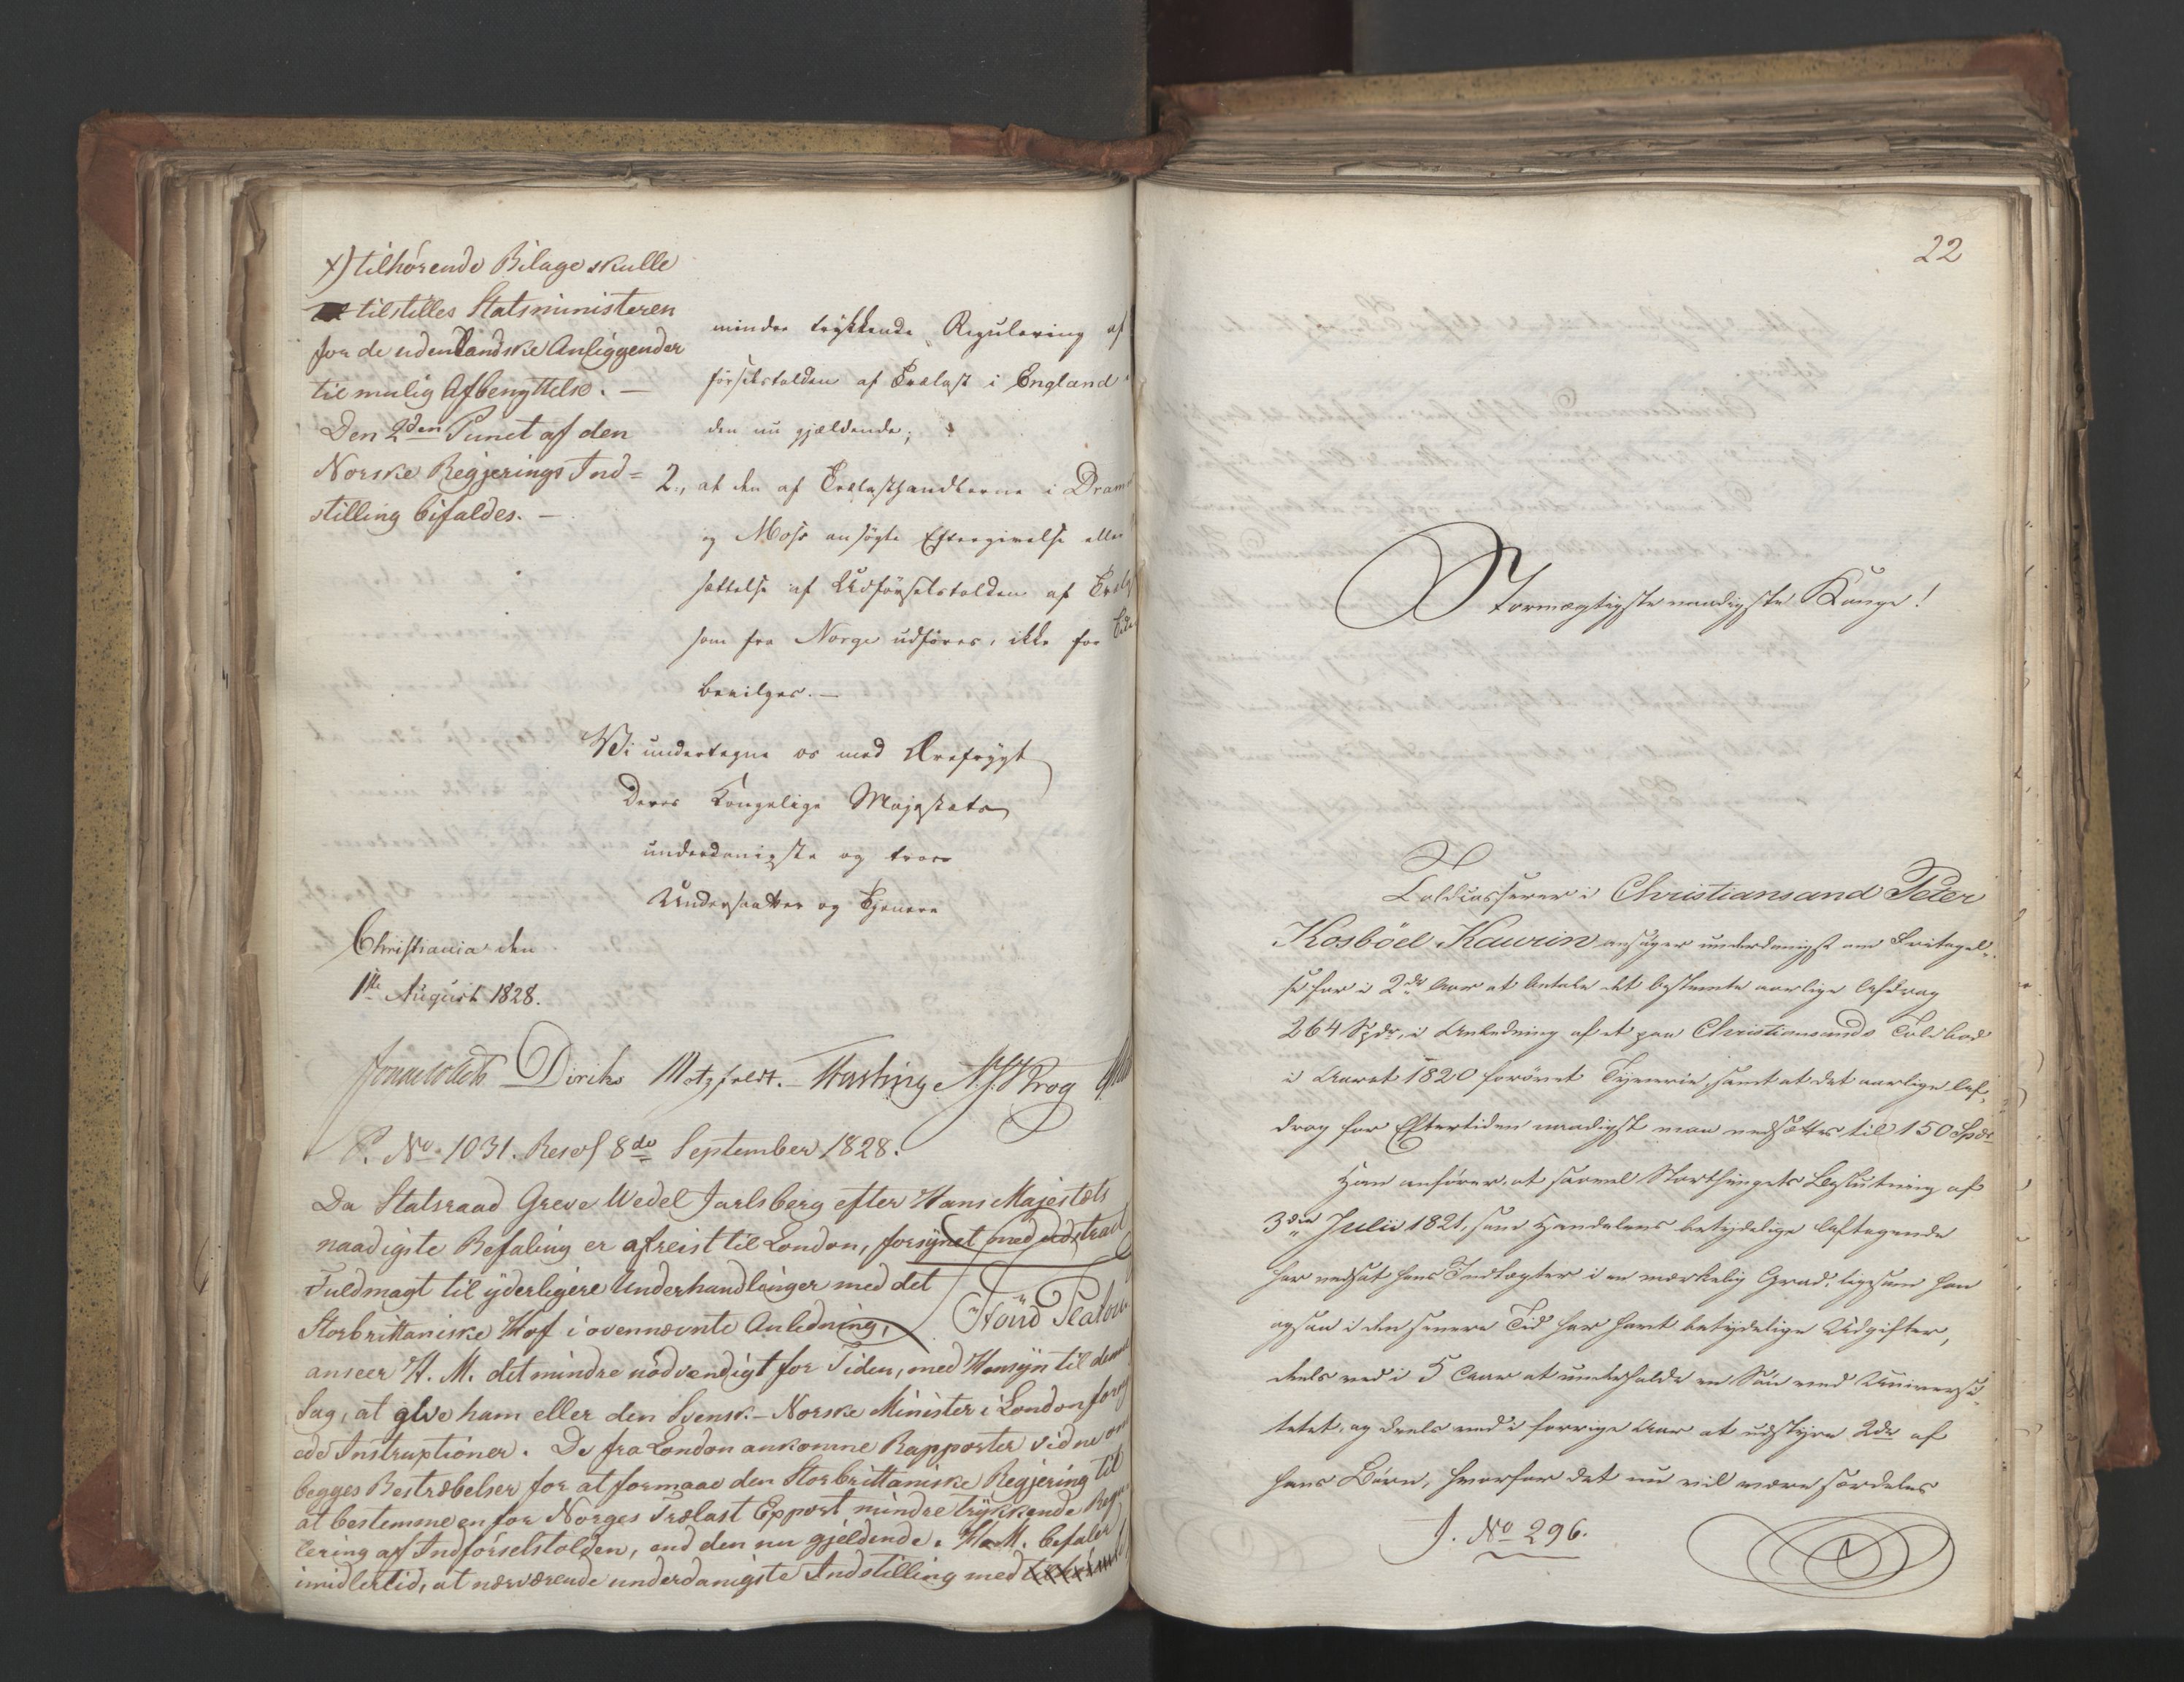 x) tilhørende Bilage skulle
tilstilles Statsministeren
for de udenlandske Anliggender
til mulig Afbenyttelse. —
Den 2den Punct af den
Norske Regjerings Ind=
stilling bifaldes. —
mindre trykkende Regulering af
førselstolden af Trælast i England
den nu gjældende;
2., at den af Trælasthandlerne i Dram
og Moss ansøgte Eftergivelse eller
sættelse af Udførselstolden af Træl
som fra Norge udføres, ikke for Tide
bevilges. —
Vi undertegne os med Ærefrygt
Deres Kongelige Majestæts
underdanigste og troe
Undersaatter og Tjenere
Christiania den
1ste August 1828.
Diriks Motzfeldt. Fasting N. J. Krog
P. No 1031. Resol 8de September 1828.
Da Statsraad Greve Wedel Jarlsberg efter Hans Majestæts
naadigste Befaling er afreist til London, forsynet med udstrakt
Fuldmagt til yderligere Underhandlinger med det
Storbrittaniske Hof i ovennævnte Anledning,
anseer H. M. det mindre nødvendigt for Tiden, med Hensyn til denne
Sag, at give ham eller den Svensk-Norske Minister i London forny
ede Instruptioner. De fra London ankomne Rapporter vidne om
begges Bestræbelser for at formaae den Storbrittaniske Regjering til
at bestemme en for Norges Trælast Export mindre trykkende Regu
lering af Indførselstolden, end den nu gjeldende. H. M. befaler
imidlertid, at nærværende underdanigste Indstilling med
22
Stormægtigste naadigste Konge!
Toldcasserer i Christiansand Peter
Kosböel Kaurin ansøger underdanigst om Fritagel=
se for i 2de Aar at betale det bestemte aarlige Afdrag
264 Spdr, i Anledning af et paa Christiansands Toldbod
i Aaret 1820 forøvet Tyverie, samt at det aarlige Af=
drag for Eftertiden naadigst maa nedsættes til 150 Spdr
Han anfører, at saavel Storthingets Beslutning af
3die Julii 1821, som Handelens betydelige Aftagende
har nedsat hans Indtægter i en mærkelig Grad, ligesom han
ogsaa i den senere Tid har havt betydelige Udgifter,
deels ved i 5 Aar at underholde en Søn ved Universi=
tetet, og deels ved i forrige Aar at udstyre 2de af
hans Børn, hvorfor det nu vil være særdeles
J. No 296.